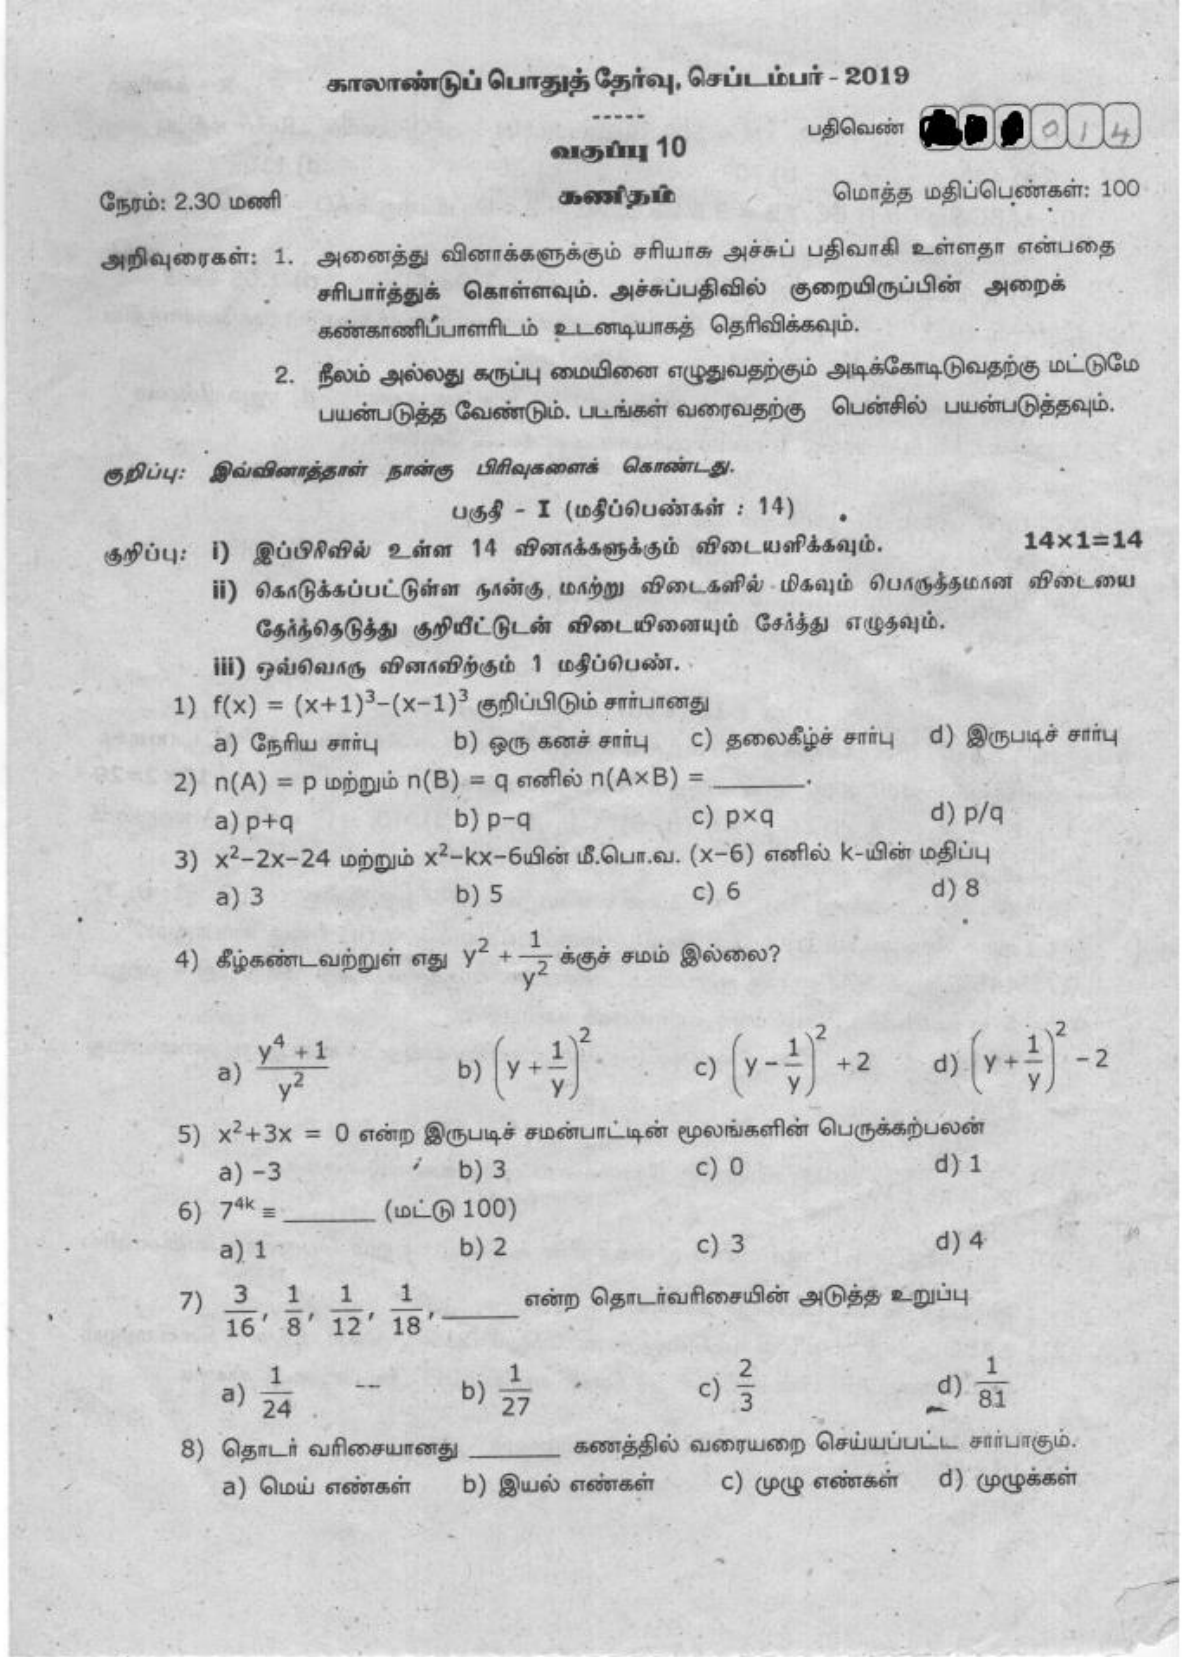 காலாண்டுப் பொதுத் தேர்வு, செப்டம்பர் - 2019
-----
பதிவெண் 0 1 4
வகுப்பு 10
நேரம்: 2.30 மணி கணிதம் மொத்த மதிப்பெண்கள்: 100
அறிவுரைகள்: 1. அனைத்து வினாக்களுக்கும் சரியாக அச்சுப் பதிவாகி உள்ளதா என்பதை
சரிபார்த்துக் கொள்ளவும். அச்சுப்பதிவில் குறையிருப்பின் அறைக்
கண்காணிப்பாளரிடம் உடனடியாகத் தெரிவிக்கவும்.
2. நீலம் அல்லது கருப்பு மையினை எழுதுவதற்கும் அடிக்கோடிடுவதற்கு மட்டுமே
பயன்படுத்த வேண்டும். படங்கள் வரைவதற்கு பென்சில் பயன்படுத்தவும்.
குறிப்பு: இவ்வினாத்தாள் நான்கு பிரிவுகளைக் கொண்டது.
பகுதி - I (மதிப்பெண்கள் : 14)
குறிப்பு: i) இப்பிரிவில் உள்ள 14 வினாக்களுக்கும் விடையளிக்கவும். 14×1=14
ii) கொடுக்கப்பட்டுள்ள நான்கு மாற்று விடைகளில் மிகவும் பொருத்தமான விடையை
தேர்ந்தெடுத்து குறியீட்டுடன் விடையினையும் சேர்த்து எழுதவும்.
iii) ஒவ்வொரு வினாவிற்கும் 1 மதிப்பெண்.
1) f(x) = (x+1)³-(x-1)³ குறிப்பிடும் சார்பானது
a) நேரிய சார்பு b) ஒரு கனச் சார்பு c) தலைகீழ்ச் சார்பு d) இருபடிச் சார்பு
2) n(A) = p மற்றும் n(B) = q எனில் n(A×B) = ______.
a) p+q b) p-q c) p×q d) p/q
3) x²-2x-24 மற்றும் x²-kx-6யின் மீ.பொ.வ. (x-6) எனில் k-யின் மதிப்பு
a) 3 b) 5 c) 6 d) 8
4) கீழ்கண்டவற்றுள் எது y² + 1/y² க்குச் சமம் இல்லை?
a) (y⁴ + 1)/y² b) (y + 1/y)² c) (y - 1/y)² + 2 d) (y + 1/y)² - 2
5) x²+3x = 0 என்ற இருபடிச் சமன்பாட்டின் மூலங்களின் பெருக்கற்பலன்
a) -3 b) 3 c) 0 d) 1
6) 7⁴ᵏ ≡ ______ (மட்டு 100)
a) 1 b) 2 c) 3 d) 4
7) 3/16, 1/8, 1/12, 1/18, ______ என்ற தொடர்வரிசையின் அடுத்த உறுப்பு
a) 1/24 b) 1/27 c) 2/3 d) 1/81
8) தொடர் வரிசையானது ______ கணத்தில் வரையறை செய்யப்பட்ட சார்பாகும்.
a) மெய் எண்கள் b) இயல் எண்கள் c) முழு எண்கள் d) முழுக்கள்